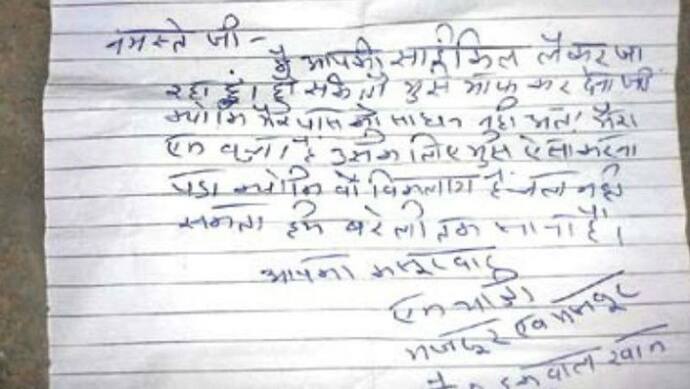 नमस्ते जी -
मै आपकी साईकिल लेकर जा
रहा हुं। हो सकेतो मुझे माफ कर देना जी
क्योकि मेरे पास कोई साधन नही मेरा
एक बच्चा है उसके लिए मुझे ऐसा करना
पड़ा क्योकि वो विकलांग है चल नही
सकता हमे बरेली तक जाना है।
आपका कसूरवार
एक यात्री
मजदूर एवं मजबूर